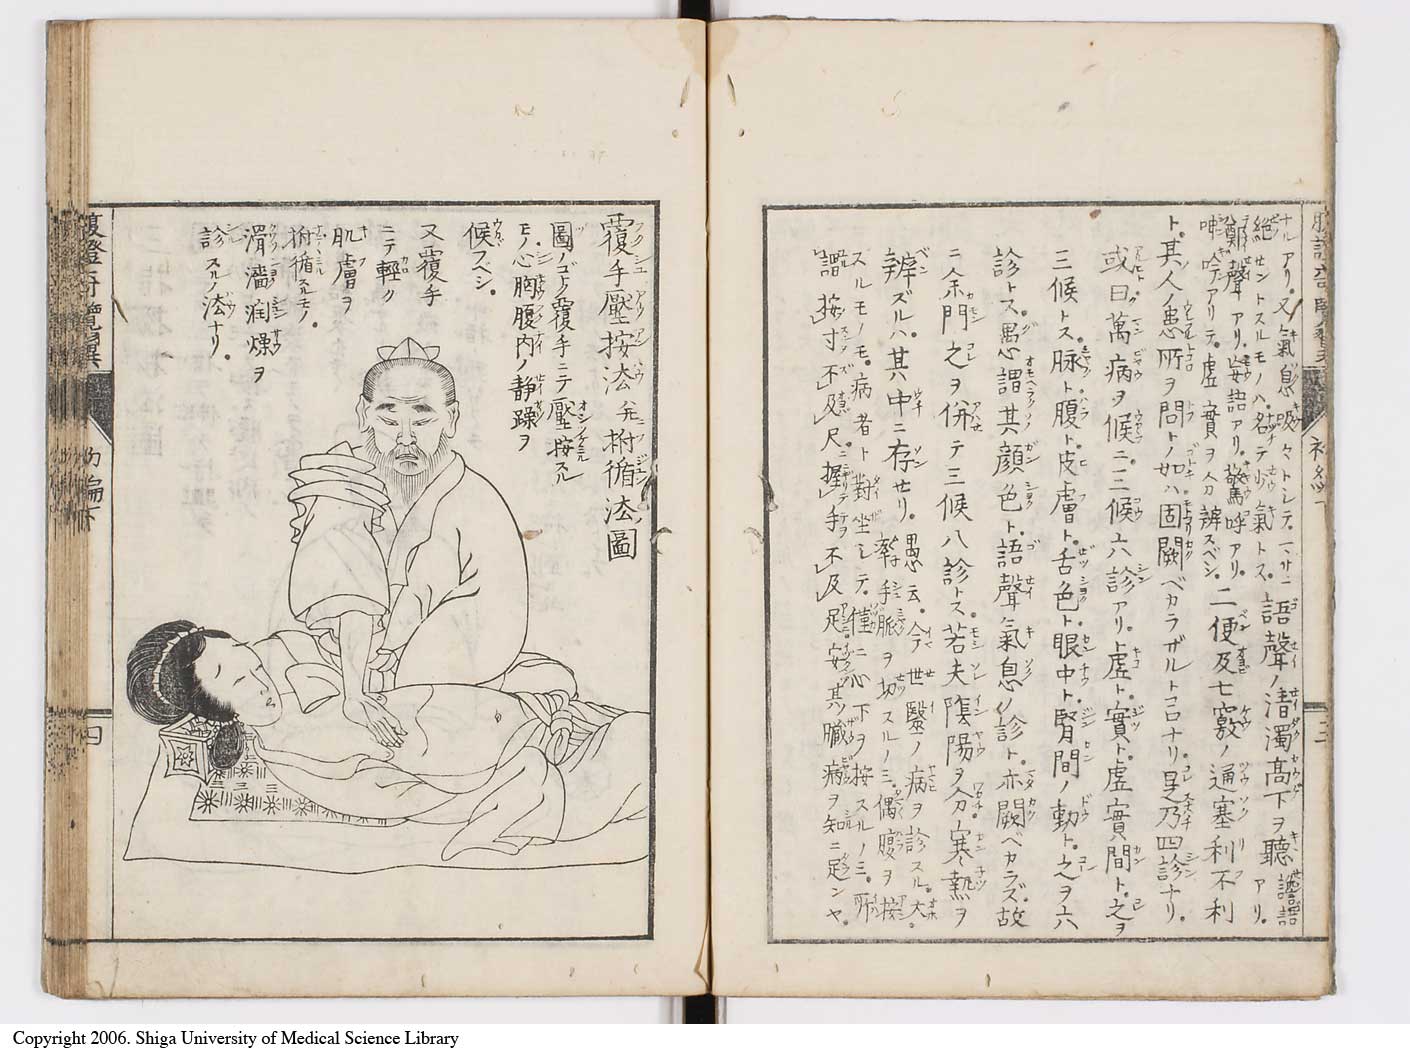 ナルアリ。又氣息吸々トシテ一マサニ
絶セントスルモノハ名テ少氣トス。語聲ノ清濁高下ヲ聽アリ。譫語
鄭聲アリ妄語アリ。驚呼アリ。
呻吟アリテ。虚實ヲ分辨スベシ。二便及七竅ノ通塞利不利
ト。其人ノ患所ヲ問ト如ハ固闕ベカラザルトコロナリ是乃四診ナリ。
或曰萬病ヲ候ニ三候六診アリ虚ト實ト虚實間ト。之ヲ
三候トス。脉ト腹ト皮膚ト舌色ト眼中ト腎間ノ動ト。之ヲ六
診トス。愚謂其顔色ト語聲氣息ノ診ト亦闕ベカラズ。故
ニ余門之ヲ併テ三候八診トス。若夫陰陽ヲ分ノ寒熱ヲ
辨ズルハ其中ニ存セリ。愚云。今世醫ノ病ヲ診スル。大
率手脈ヲ切スルノミ。偶腹ヲ按
スルモノモ。病者ト對坐シテ。僅ニ心下ヲ按スルノミ。所
謂按寸不及尺。握手不及足。安其臓病ヲ知ニ足ンヤ。
覆手壓按法并拊循法ノ圖
圖ノゴトク覆手ニテ壓按スル
モノ心胸腹内ノ静躁ヲ
候フベシ。
又覆手
ニテ輕ク
肌膚ヲ
拊循スルモノ。
滑濇潤燥ヲ
診スルノ法ナリ。
四
三
Copyright 2006. Shiga University of Medical Science Library